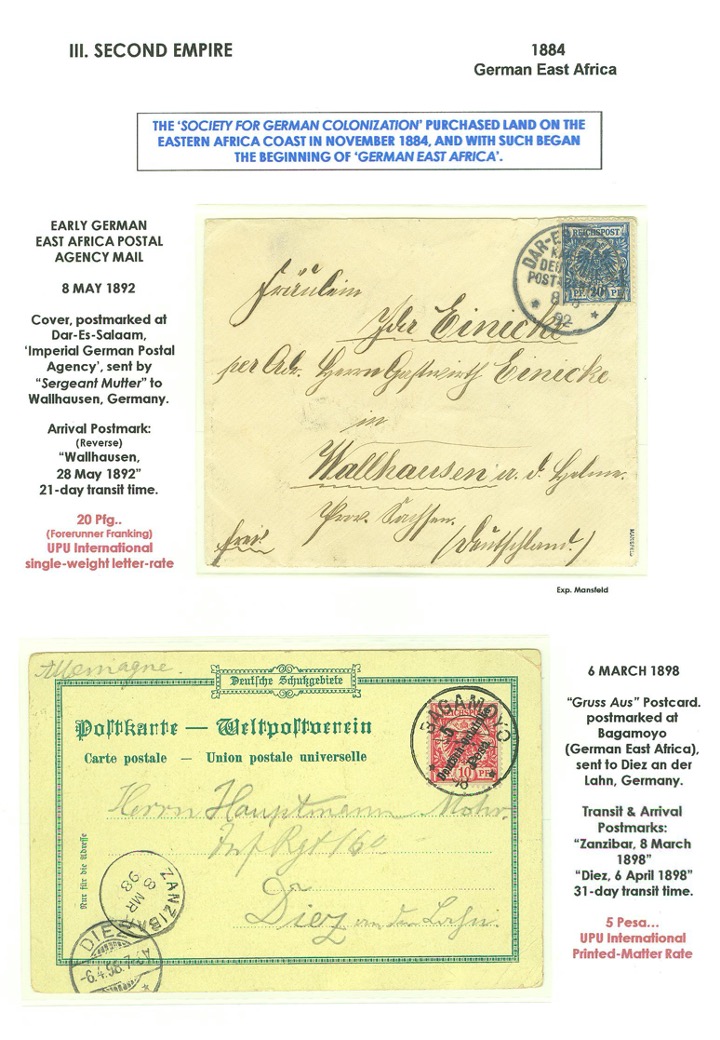 III. SECOND EMPIRE
1884
German East Africa
THE ‘SOCIETY FOR GERMAN COLONIZATION’ PURCHASED LAND ON THE
EASTERN AFRICA COAST IN NOVEMBER 1884, AND WITH SUCH BEGAN
THE BEGINNING OF ‘GERMAN EAST AFRICA’.
EARLY GERMAN
EAST AFRICA POSTAL
AGENCY MAIL
8 MAY 1892
Cover, postmarked at
Dar-Es-Salaam,
‘Imperial German Postal
Agency’, sent by
“Sergeant Mutter” to
Wallhausen, Germany.
Arrival Postmark:
(Reverse)
“Wallhausen,
28 May 1892”
21-day transit time.
20 Pfg..
(Forerunner Franking)
UPU International
single-weight letter-rate
REICHSPOST
DAR-ES
92
Fräulein
Ida Einicke
per Adr. Herrn Gastwirth Einicke
in
Wallhausen a. d. Helme.
Prov. Sachsen.
frei!
(Deutschland.)
MANSFELD
Exp. Mansfeld
Allemagne.
Deutsche Schutzgebiete
Postkarte — Weltpostverein
Carte postale — Union postale universelle
BAGAMOYO
10 PF
Herrn Hauptmann Mohr.
Inf Rgt 160
Diez an der Lahn.
Nur für die Adresse
ZANZIBAR
8 MR
98
DIEZ
-6.4.98.
6 MARCH 1898
“Gruss Aus” Postcard.
postmarked at
Bagamoyo
(German East Africa),
sent to Diez an der
Lahn, Germany.
Transit & Arrival
Postmarks:
“Zanzibar, 8 March
1898”
“Diez, 6 April 1898”
31-day transit time.
5 Pesa...
UPU International
Printed-Matter Rate